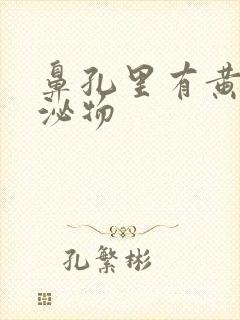 鼻孔里有黄
泌物
孔繁彬